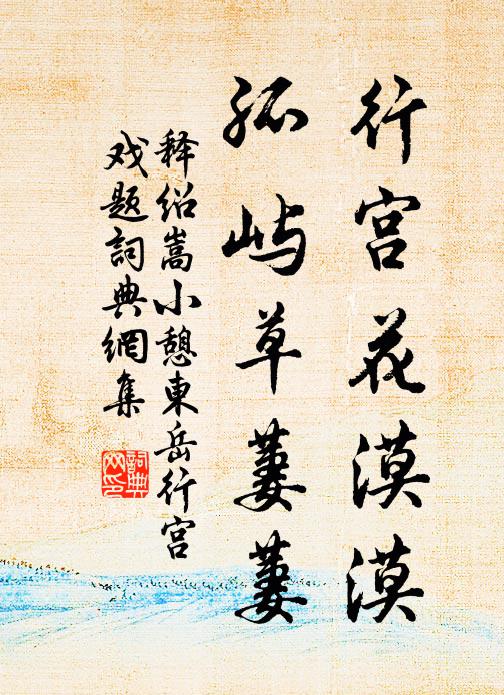 行宫花漠漠
孤屿草萋萋
释绍嵩小憩東岳行宫
戏题詞典網集
詞典
网印